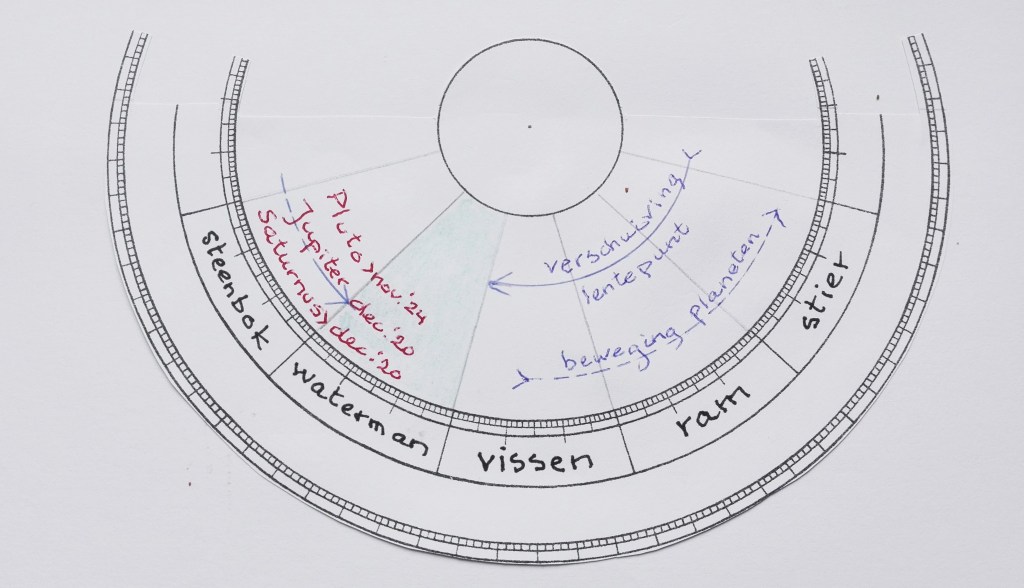 Pluto > nov. '24
Jupiter dec. '20
Saturnus > dec. '20
verschuiving
lentepunt
beweging planeten
steenbok
waterman
vissen
ram
stier